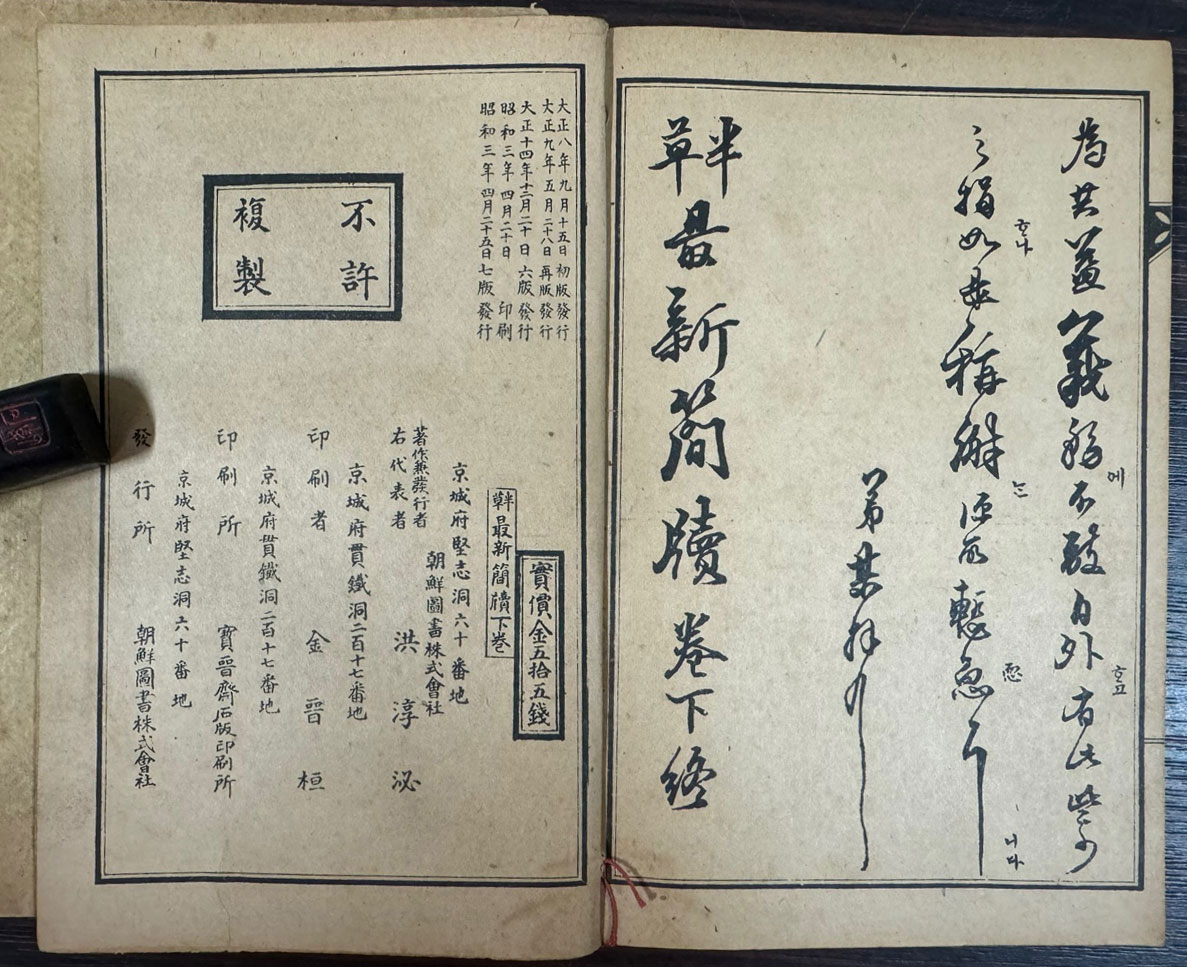 為共益義務에不敢自外호고有此些少
之捐호나如是稱는니다
弟某拜
半草最新簡牘卷下終
大正八年九月十五日初版發行
大正九年五月二十八日再版發行
大正十四年十二月二十日六版發行
昭和三年四月二十日印刷
昭和三年四月二十五日七版發行
不許
複製
實價金五拾五錢
半草最新簡牘下卷
京城府堅志洞六十番地
朝鮮圖書株式會社
著作兼發行者
右代表者洪淳泌
京城府貫鐵洞二百十七番地
印刷者金晉桓
京城府貫鐵洞二百十七番地
印刷所寶晉齋石版印刷所
京城府堅志洞六十番地
發行所朝鮮圖書株式會社